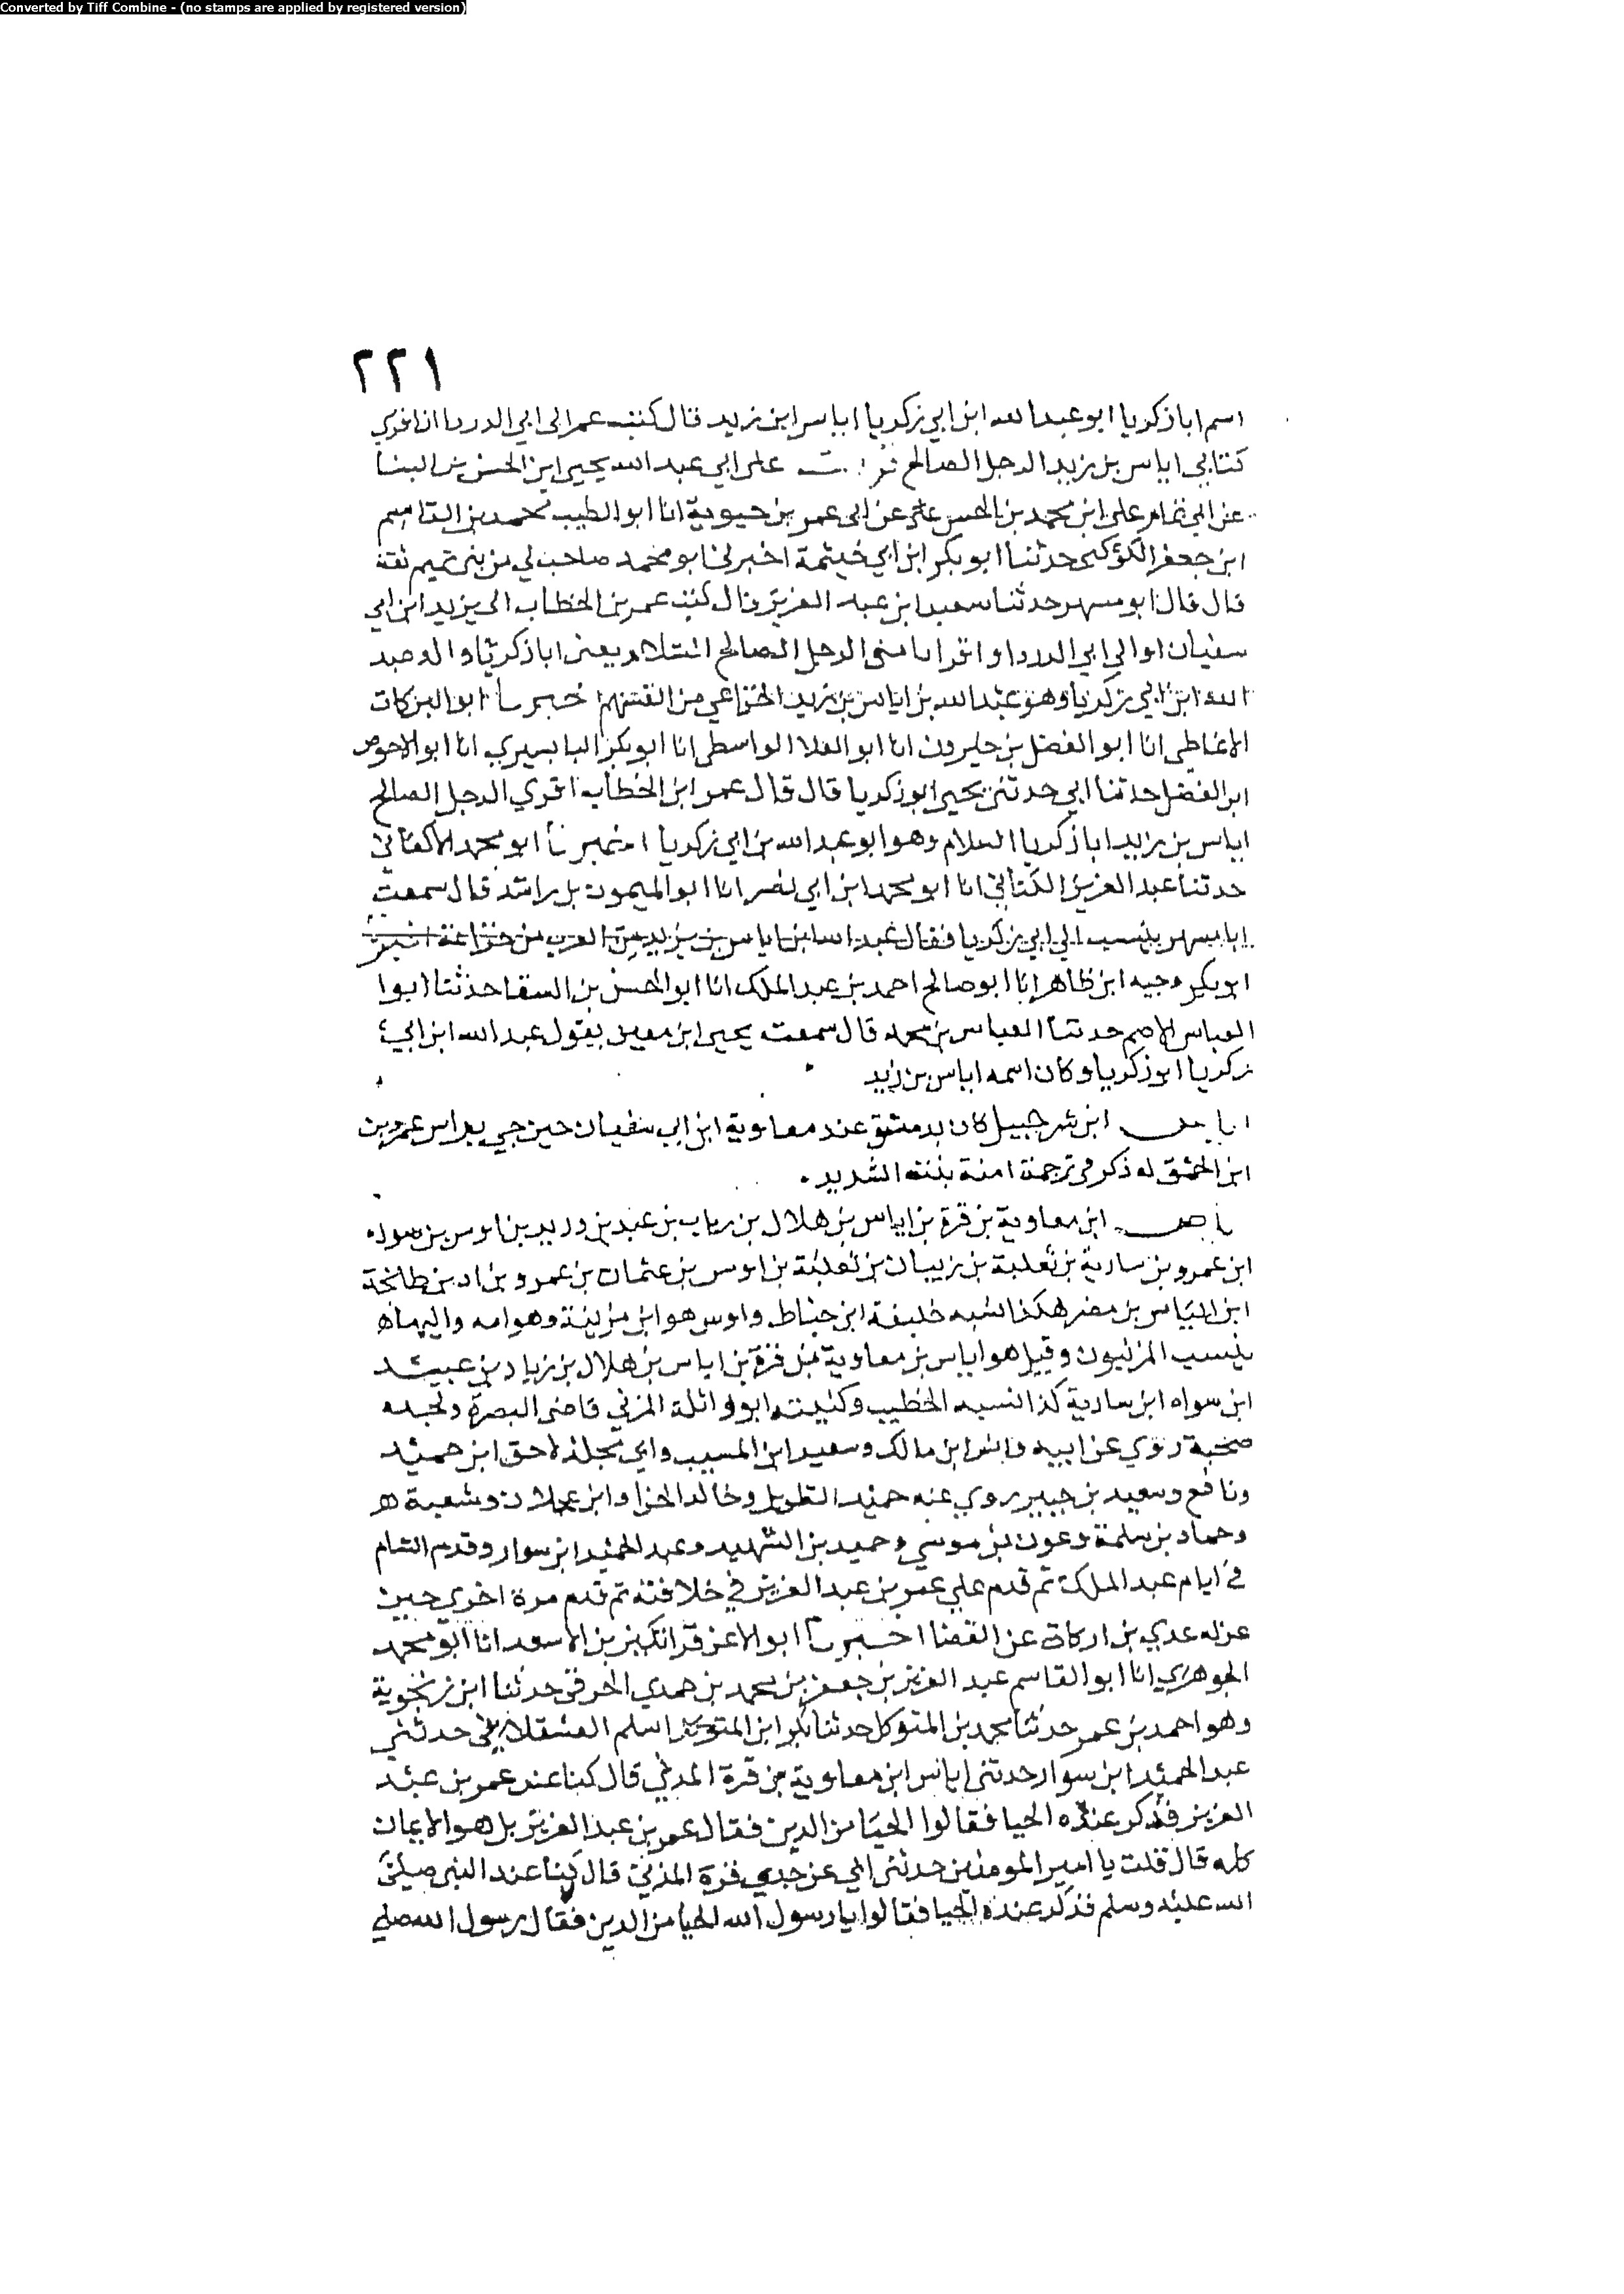 Converted by Tiff Combine - (no stamps are applied by registered version)
٢٢١
اسم ابا زكريا ابو عبد الله ابن ابي زكريا اياس ابن زيد قال كتب عمر الى ابي الدردا ان اقري
كتابي اياس بن يزيد الرجل الصالح على ابي عبد الله يحيى ابن الحسن بن البنا
عن ابي تمام على ابن محمد بن الحسن عن ابى عمر بن حيوية انا ابو الطيب محمد بن القاسم
ابن جعفر الكوكبى حدثنا ابو بكر ابن ابي خيثمة اخبرنى ابو محمد صاحب لي من بنى تميم ثقة
قال قال ابو مسهر حدثنا سعيد ابن عبد العزيز قال كتب عمر بن الخطاب الى يزيد ابن ابي
سفيان او الي ابي الدردا واقرا منى الرجل الصالح السلام يعنى ابا زكريا والد عبد
الله ابن ابي زكريا وهو عبد الله بن اياس بن يزيد الخزاعي من انفسهم اخبرنا ابو البركات
الانماطي انا ابو الفضل بن خيرون انا ابو العلا الواسطى انا ابو بكر البابسيري انا ابو الاحوص
ابن الفضل حدثنا ابي حدثنى يحيى ابو زكريا قال قال عمر ابن الخطاب اقري الرجل الصالح
اياس بن يزيد ابا زكريا السلام وهو ابو عبد الله بن ابي زكريا اخبرنا ابو محمد الاكفاني
حدثنا عبد العزيز الكتاني انا ابو محمد ابن ابي نصر انا ابو الميمون بن راشد قال سمعت
ابا مسهر ينسب الي ابي زكريا فقال عبد الله ابن اياس بن يزيد من العرب من خزاعة اخبرنا
ابو بكر وجيه ابن طاهر انا ابو صالح احمد بن عبد الملك انا ابو الحسن بن السقا حدثنا ابوا
العباس الاصم حدثنا العباس بن محمد قال سمعت يحيى ابن معين يقول عبد الله ابن ابي
زكريا ابو زكريا وكان اسمه اياس بن زيد
اياس ابن شرحبيل كان بدمشق عند معاوية ابن ابي سفيان حين جي براس عمرو بن
ابن الحمق له ذكر في ترجمة امنة بنت الشريد
اياس ابن معاوية بن قرة بن اياس بن هلال بن رباب بن عبد بن دريد بن اوس بن سواه
ابن عمرو بن سارية بن ثعلبة بن زبيان بن ثعلبة بن اوس بن عثمان بن عمرو بن اد بن طابخة
ابن الياس بن مضر هكذا نسبه خليفة ابن خياط واوس هو ابن مزينة وهو امه واليها
ينسب المزنيون وقيل هو اياس بن معاوية بن قرة بن اياس بن هلال بن زياد بن عبيد
ابن سواه ابن سارية كذا نسبه الخطيب وكنيته ابو واثلة المزني قاضى البصرة ولجده
صحبة روي عن ابيه وانس ابن مالك وسعيد ابن المسيب وابي مجلز لاحق ابن حميد
ونافع وسعيد بن جبير روي عنه حميد الطويل وخالد الحذا وابن عجلان وشعبة
وحماد بن سلمة وعون بن موسى وحميد بن الشهيد وعبد الحميد ابن سوار وقدم الشام
في ايام عبد الملك ثم قدم علي عمر بن عبد العزيز في خلافته ثم قدم مرة اخري حين
عزله عدي بن ارطاة عن القضا اخبرنا ابو الاعز قراتكين بن الاسعد انا ابو محمد
الجوهري انا ابو القاسم عبد العزيز بن جعفر بن محمد بن حمدي الخرقي حدثنا ابن زنجوية
وهو احمد بن عمر حدثنا محمد بن المتوكل حدثنا بكر ابن اسلم العسقلاني حدثني
عبد الحميد ابن سوار حدثنى اياس ابن معاوية بن قرة المدني قال كنا عند عمر بن عبد
العزيز فذكر عنده الحيا فقالوا الحيا من الدين فقال عمر بن عبد العزيز بل هو الايمان
كله قال قلت يا امير المومنين حدثنى ابي عن جدي قرة المزني قال كنا عند النبي صلى
الله عليه وسلم فذكر عنده الحيا فقالوا يا رسول الله الحيا من الدين فقال رسول الله صلي